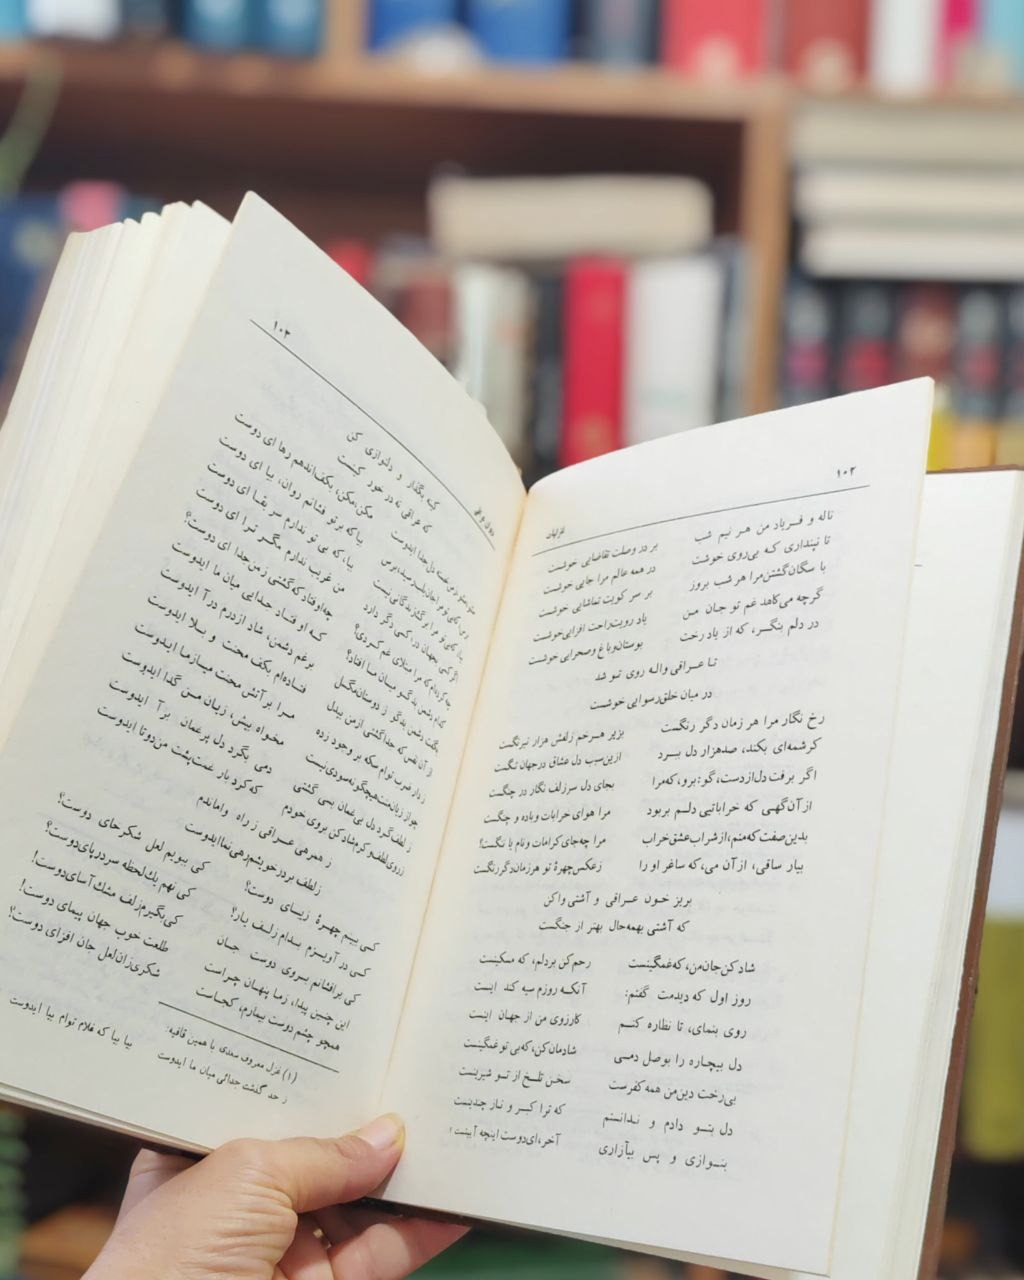 ۱۰۲
غزلیات
ناله و فریاد من هر نیم شب بر در وصلت تقاضایی خوشست
تا نپنداری که بی‌روی خوشت در همه عالم مرا جایی خوشست
با سگان گشتن مرا هر شب بروز بر سر کویت تماشایی خوشست
گرچه می‌کاهد غم تو جان من یاد رویت راحت افزایی خوشست
در دلم بنگر، که از یاد رخت بوستان و باغ و صحرایی خوشست
تا عراقی واله روی تو شد
در میان خلق رسوایی خوشست
رخ نگار مرا هر زمان دگر رنگست بزیر هر خم زلفش هزار نیرنگست
کرشمه‌ای بکند، صدهزار دل ببرد ازین سبب دل عشاق در جهان تنگست
اگر برفت دل از دست، گو: برو، که مرا بجای دل سر زلف نگار در چنگست
از آن گهی که خراباتیی دلم بربود مرا هوای خرابات و باده و چنگست
بدین صفت که منم، از شراب عشق خراب مرا چه جای کرامات و نام یا ننگست؟
بیار ساقی، از آن می، که ساغر او را ز عکس چهرهٔ تو هر زمان دگر رنگست
بریز خون عراقی و آشتی واکن
که آشتی بهمه حال بهتر از جنگست
شاد کن جان من، که غمگینست رحم کن بر دلم، که مسکینست
روز اول که دیدمت گفتم: آنکه روزم سیه کند اینست
روی بنمای، تا نظاره کنم کارزوی من از جهان اینست
دل بیچاره را بوصل دمی شادمان کن، که بی تو غمگینست
بی‌رخت دین من همه کفرست سخن تلخ از تو شیرینست
دل بتو دادم و ندانستم که ترا کبر و ناز چندینست
بنوازی و پس بیآزاری آخر، ای دوست اینچه آیینست؟
۱۰۳
که بگفتار و دلنوازی کن
که عراقی نه در خور کینست
مکن، مکن، بکف اندهم رها ای دوست
بیا که بر تو فشانم روان، بیا ای دوست
بیا، که بی تو ندارم سر بقا ای دوست
من غریب ندارم مگر ترا ای دوست
اگر کسی بجهان در، کسی دگر دارد
چه کرده‌ام که مرا مبتلای غم کردی؟ چه اوفتاد که گشتی ز من جدا ای دوست؟
که او فتاد جدایی میان ما ایدوست
بگفت دشمن بدگو ز دوستان مگسل برغم دشمن، شاد از درم درآ ایدوست
از آن نفس که جدا گشتی از من بیدل فتاده‌ام بکف محنت و بلا ایدوست
ز دار ضرب توام سکه بر وجود زده مرا بر آتش محنت میازما ایدوست
چو از زیان منت هیچگونه سودی نیست مخواه بیش، زیان من گدا ایدوست
ز لطف گرد دل بی‌غمان بسی گشتی دمی بگرد دل پر غمان برآ ایدوست
ز روی لطف و کرم شاد کن بروی خودم که کرد بار غمت پشت من دوتا ایدوست
ز همرهی عراقی ز راه واماندم
ز لطف بر در خویشم رهی نما ایدوست
کی ببینم چهرهٔ زیبای دوست؟ کی ببویم لعل شکرخای دوست؟
کی درآویزم بدام زلف یار؟ کی نهم یک لحظه سر در پای دوست؟
کی برافشانم بروی دوست جان کی بگیرم زلف مشک آسای دوست!
این چنین پیدا، ز ما پنهان چراست طلعت خوب جهان پیمای دوست!
همچو چشم دوست بیمارم، کجاست شکری زان لعل جان افزای دوست؟
(۱) غزل معروف سعدی با همین قافیه:
ز حد گذشت جدائی میان ما ایدوست بیا بیا که غلام توام بیا ایدوست